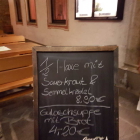 1/2 Haxe mit
Sauerkraut &
Semmelknödel
8.30€
Gulaschsuppe
mit Brot
4.20€